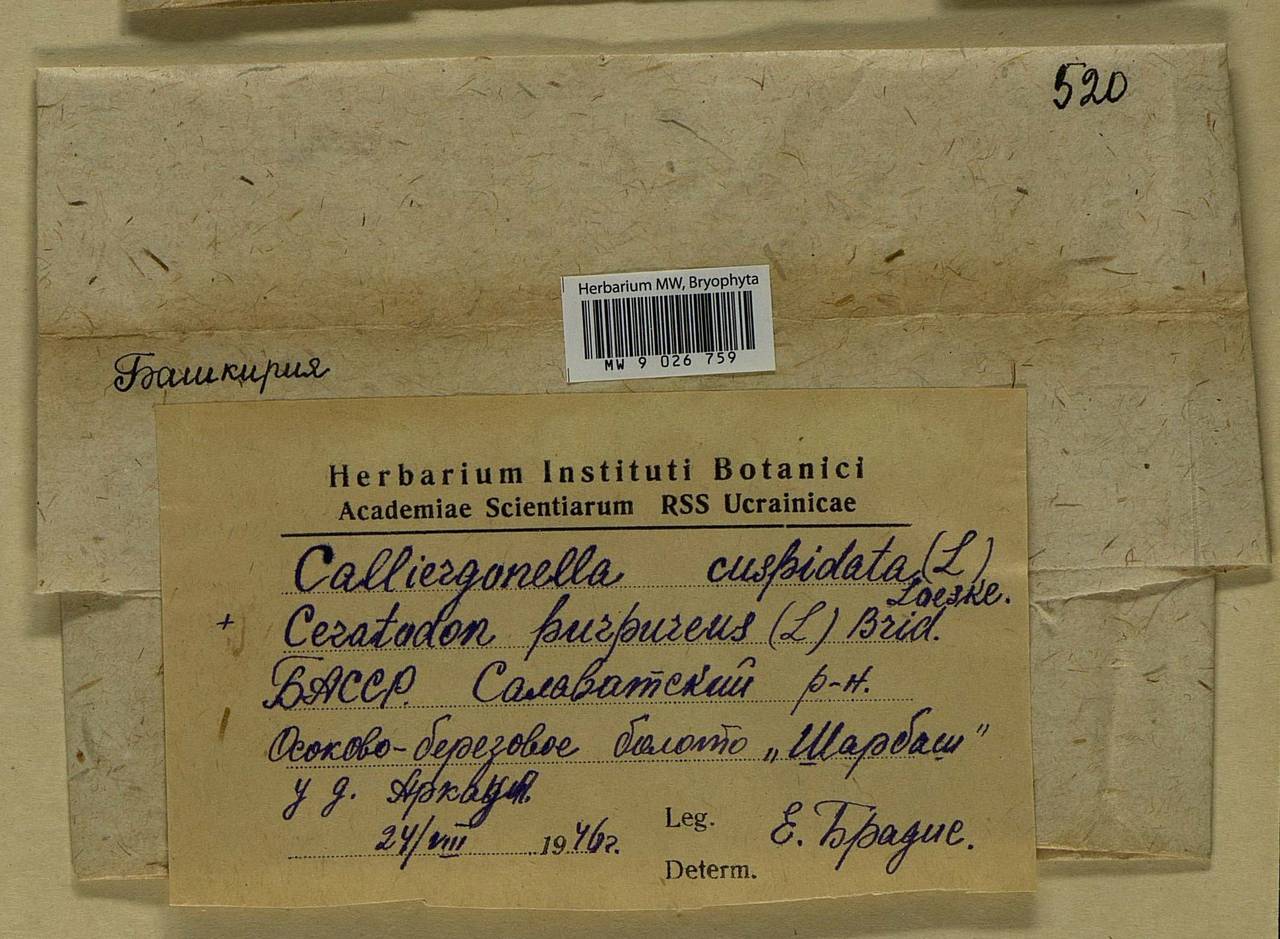 520
Herbarium MW, Bryophyta
MW 9 026 759
Башкирия
Herbarium Instituti Botanici
Academiae Scientiarum RSS Ucrainicae
Calliergonella cuspidata (L)
Loeske.
+ Ceratodon purpureus (L) Brid.
БАССР. Салаватский р-н.
Осоково-березовое болото „Шарбаш"
у д.
24/VIII 1946г.
Leg. Е. Брадис.
Determ.